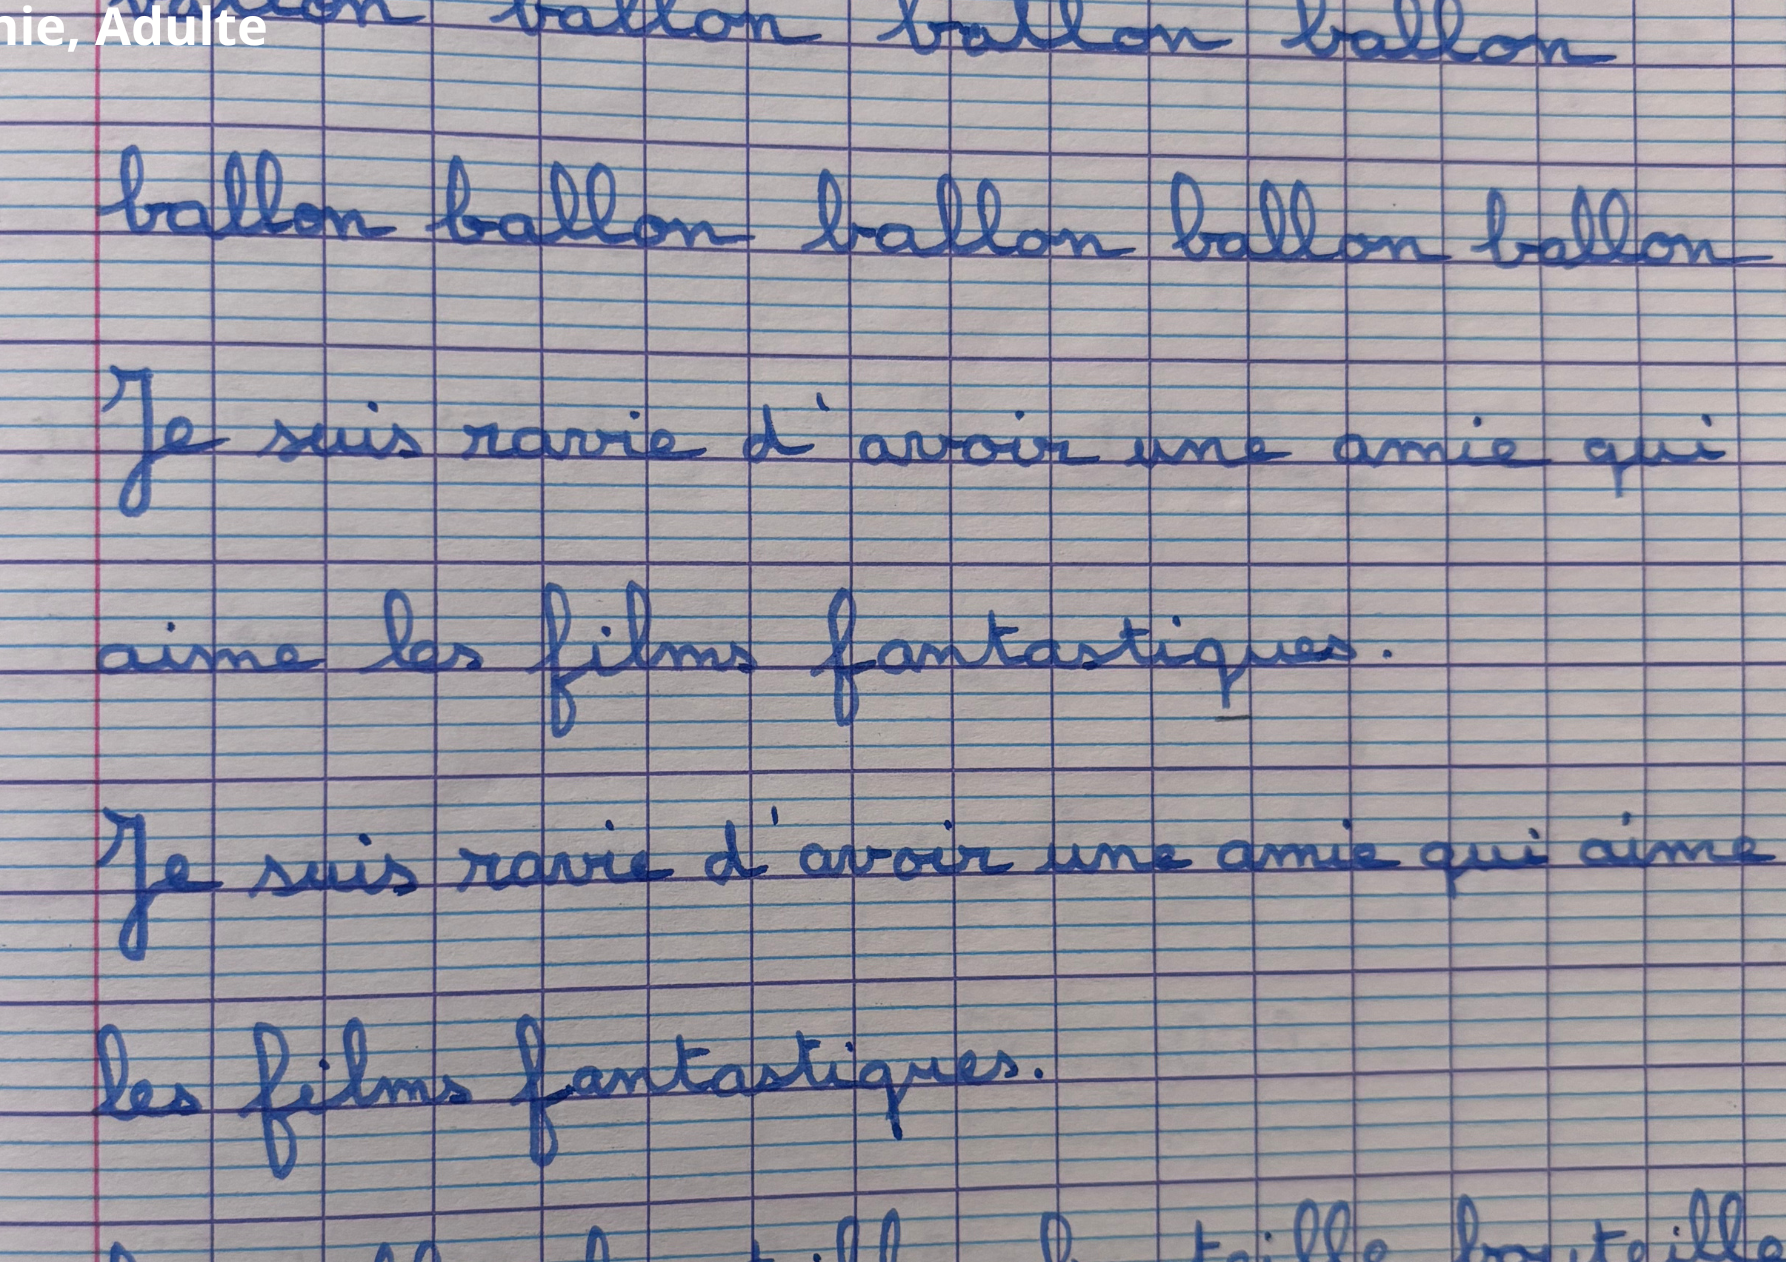 ballon ballon ballon ballon
nie, Adulte
ballon ballon ballon ballon ballon
Je suis ravie d'avoir une amie qui
aime les films fantastiques.
Je suis ravie d'avoir une amie qui aime
les films fantastiques.
bouteille